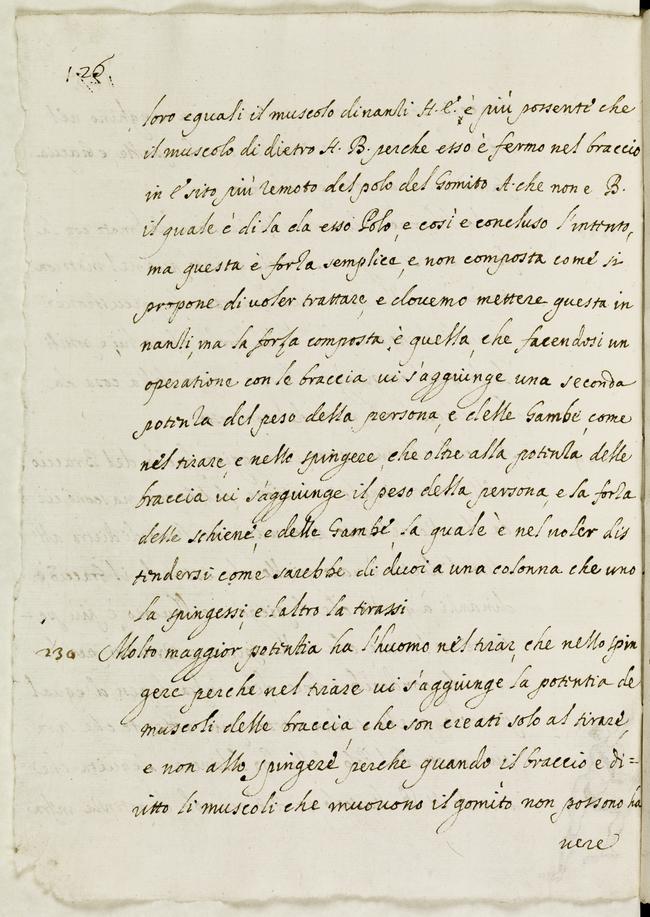 126
loro eguali il muscolo dinanti A. C. è più possente che
il muscolo di dietro A. B. perche esso è fermo nel braccio
in e sito più remoto del polo del Gomito A. che non e B.
il quale è di la da esso Polo, e cosi e concluso l'intento,
ma questa è forza semplice, e non composta come si
propone di voler trattare, e dovemo mettere questa in
nanti, ma la forza composta è quella, che facendosi un
operatione con le braccia ui s'aggiunge una seconda
potenza del peso della persona, e delle Gambe, come
nel tirare, e nello spingere, che oltre alla potenza delle
braccia ui s'aggiunge il peso della persona, e la forza
delle schiene, e delle Gambe, la quale è nel uoler dis
tendersi come sarebbe di duoi a una colonna che uno
la spingessi, e laltro la tirassi
230 Molto maggior potentia ha l'huomo nel tirar, che nello spin
gere perche nel tirare ui s'aggiunge la potentia de
muscoli delle braccia che son creati solo al tirare,
e non allo spingere, perche quando il braccio e di=
ritto li muscoli che muouono il gomito non possono ha
uere